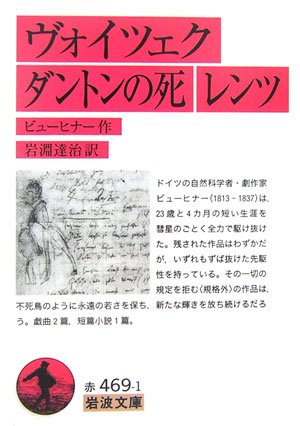 ヴォイツェク
ダントンの死 レンツ
ビューヒナー作
岩淵達治訳
ドイツの自然科学者・劇作家
ビューヒナー(1813-1837)は、
23歳と4カ月の短い生涯を
彗星のごとく全力で駆け抜け
た。残された作品はわずかだ
が、いずれもずば抜けた先駆
性を持っている。その一切の
規定を拒む〈規格外〉の作品は、
不死鳥のように永遠の若さを保ち、新たな輝きを放ち続けるだろ
う。戯曲2篇、短篇小説1篇。
赤 469-1
岩波文庫